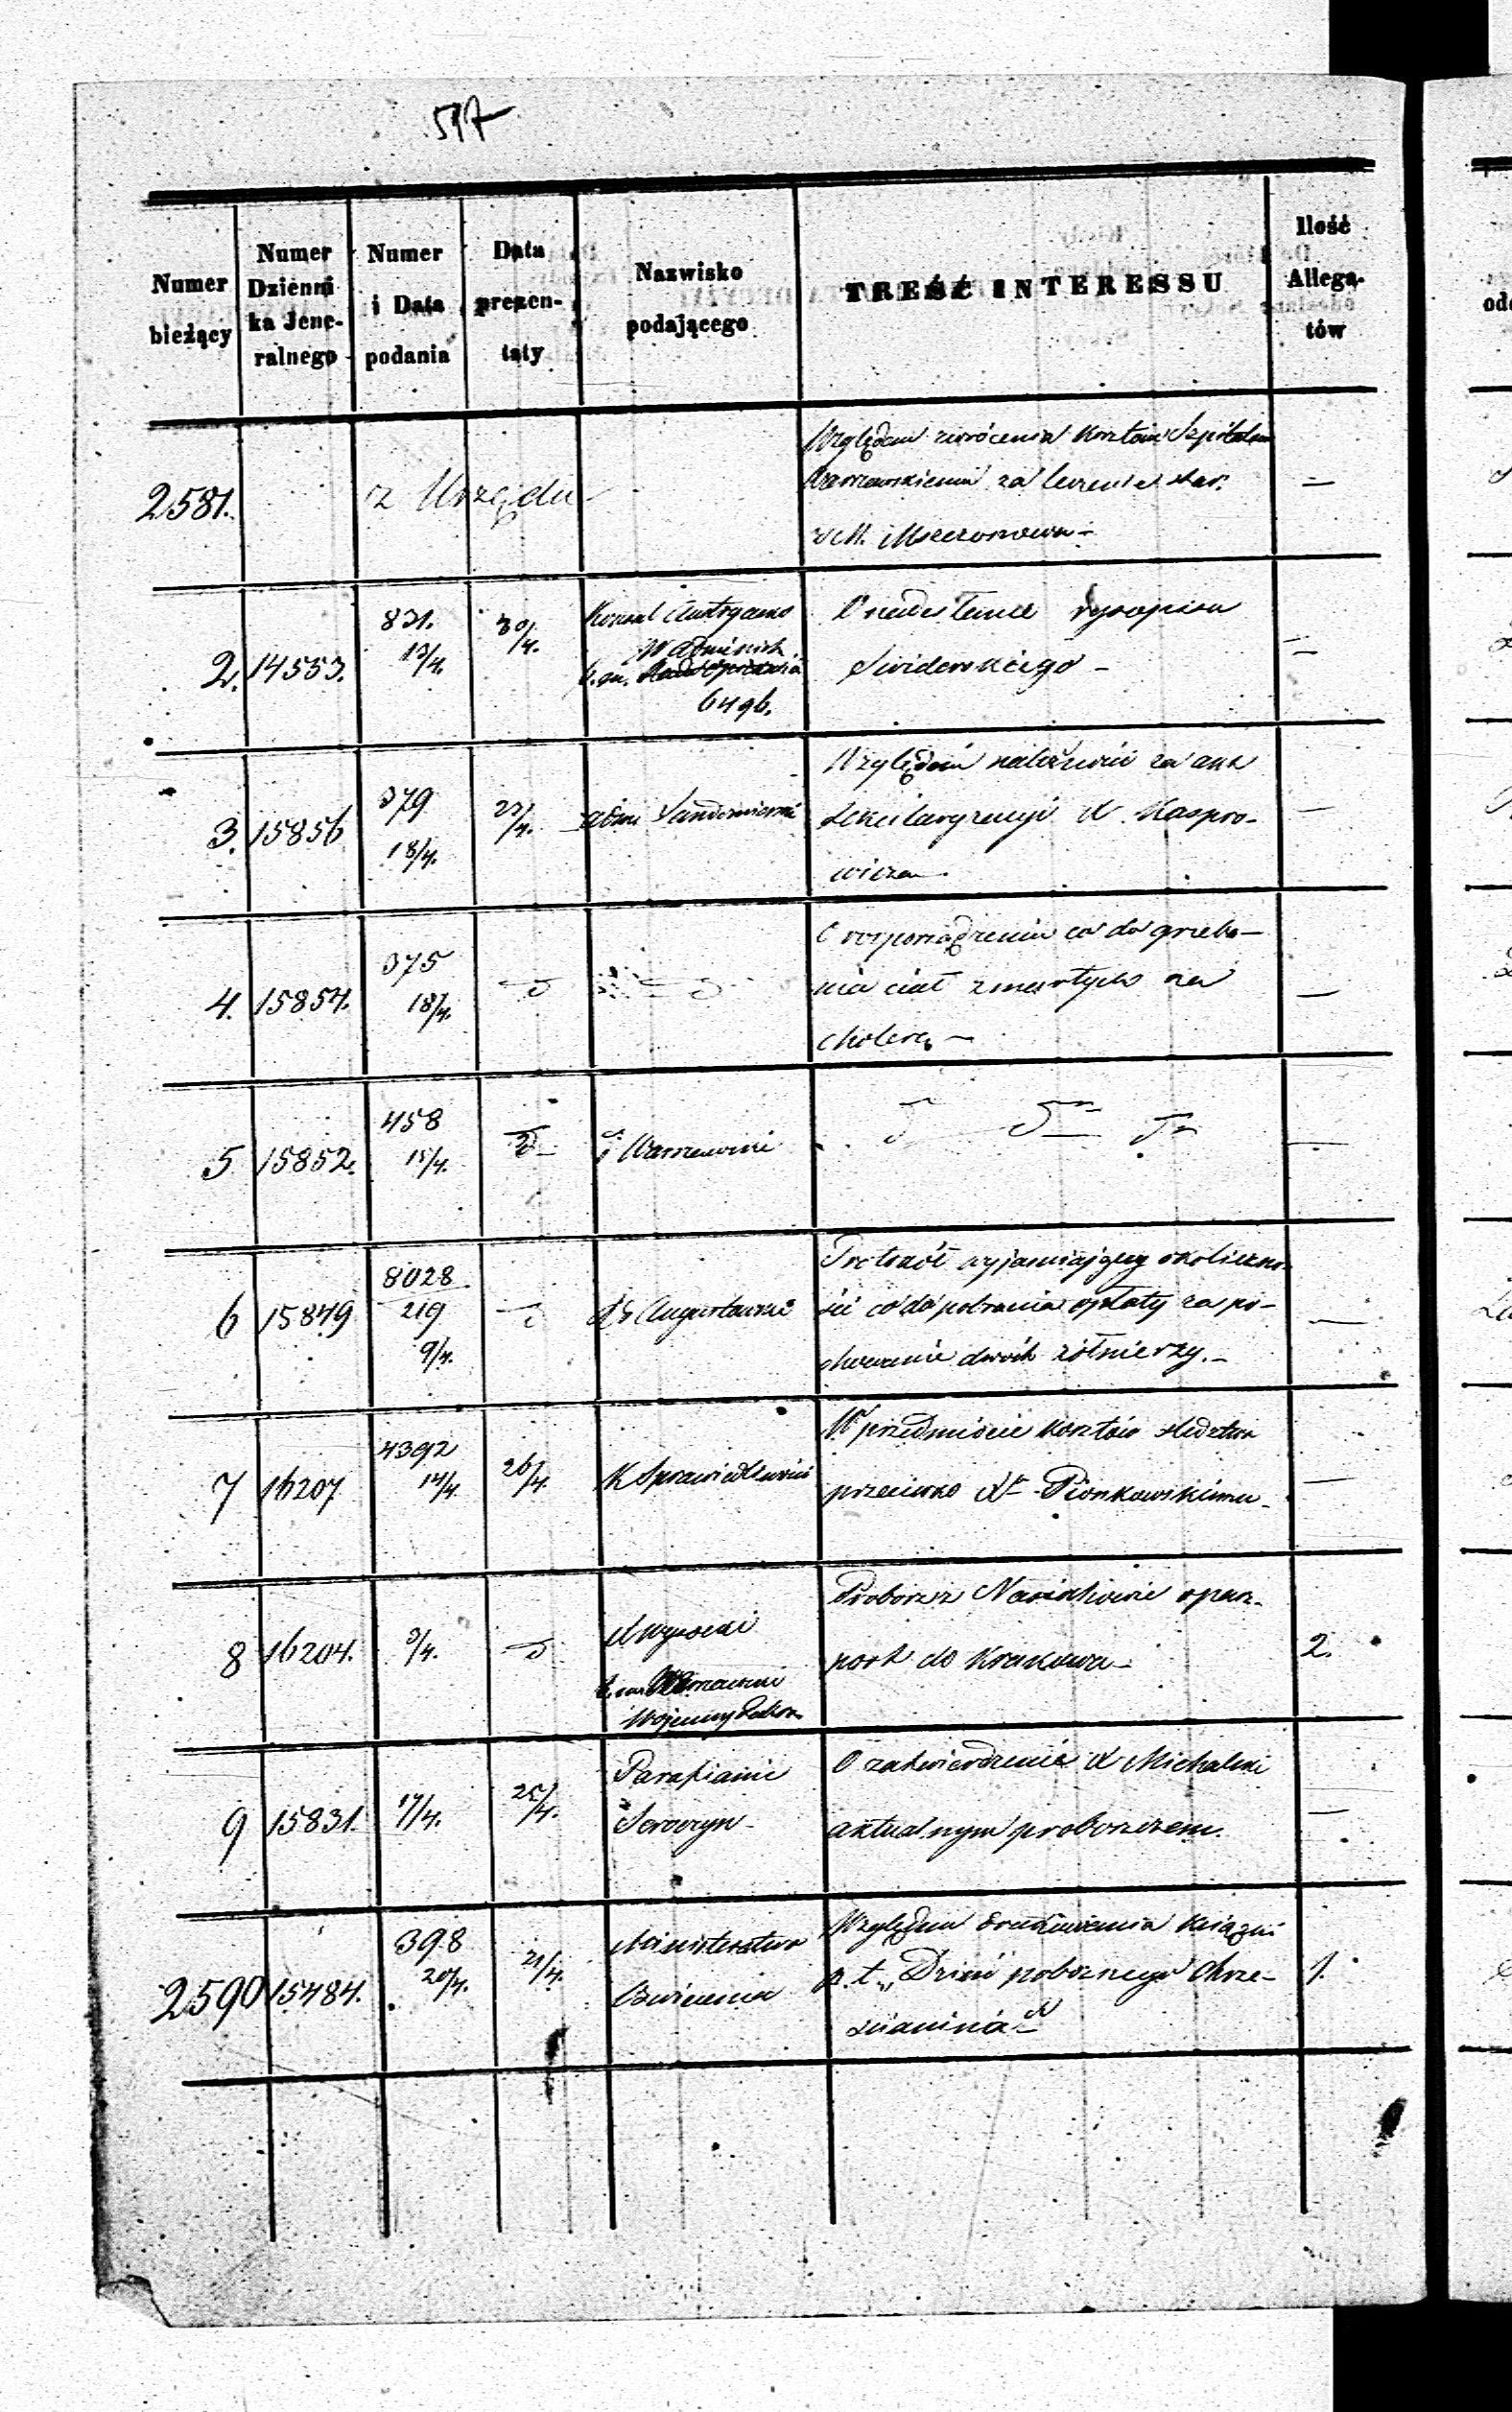 597
Numer bieżący
Numer Dzienni
ka Jene-
ralnego
Numer
i Data
podania
Data
prezen-
taty
Nazwisko
podającego
TREŚĆ INTERESSU
Ilość
Allega-
tów
2581.
z Urzędu
Względem zwrócenia kosztów Szpitalom
Warszawskiemu za leczenie
Mszczonowa –
–
2. 14553.
831.
13/4.
30/4.
Konsul Austryacko
6496.
O nadesłanie rysopisu
Swiderskiego –
–
3. 15856
379
18/4.
23/4.
Adm Sandomierski
Względem należności za
X. Kaspro-
wicza
–
4. 15854.
375
18/4.
d
d
O rozporządzenie co do grzeba-
nia ciał zmarłych na
cholerę –
–
5 15852.
458
15/4.
d
Warszawski
d d d
–
6 15849
8028
219
9/4.
d
Augustowski
Protokół wyjaśniający okoliczno-
ści co do pobrania opłaty za po-
chowanie dwóch żołnierzy. –
–
7 16207
4392
14/4
26/4
K Sprawiedliwości
W przedmiocie kosztów śledztwa
przeciwko Xdu Pionkowskiemu
–
8 16204.
3/4.
d
Wojenny
Proboszcz o pasz-
port do Krakowa –
2.
9 15831.
17/4.
25/4.
Parafianie
Seroczyn –
O zatwierdzenie X Michalski
aktualnym proboszczem.
–
2590 15484.
398
20/4.
21/4.
Ministerstwo
Oświecenia
Względem drukowania książki
p. t. „Dzień pobożnego chrze-
ścianina"
1.